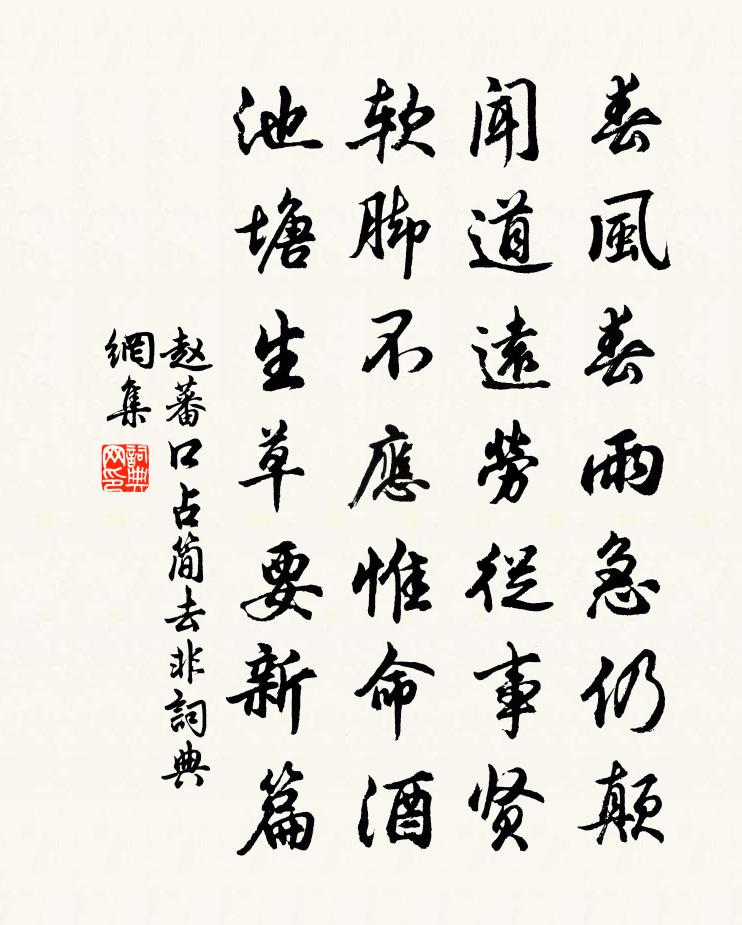 春風春雨急仍顛
闻道遠勞從事贤
软脚不應惟命酒
池塘生草要新篇
赵蕃口占简去非詞典
網集
詞典网印